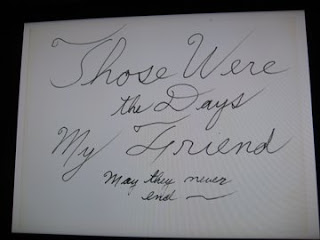 Those Were
the Days
My Friend
May they never
end —